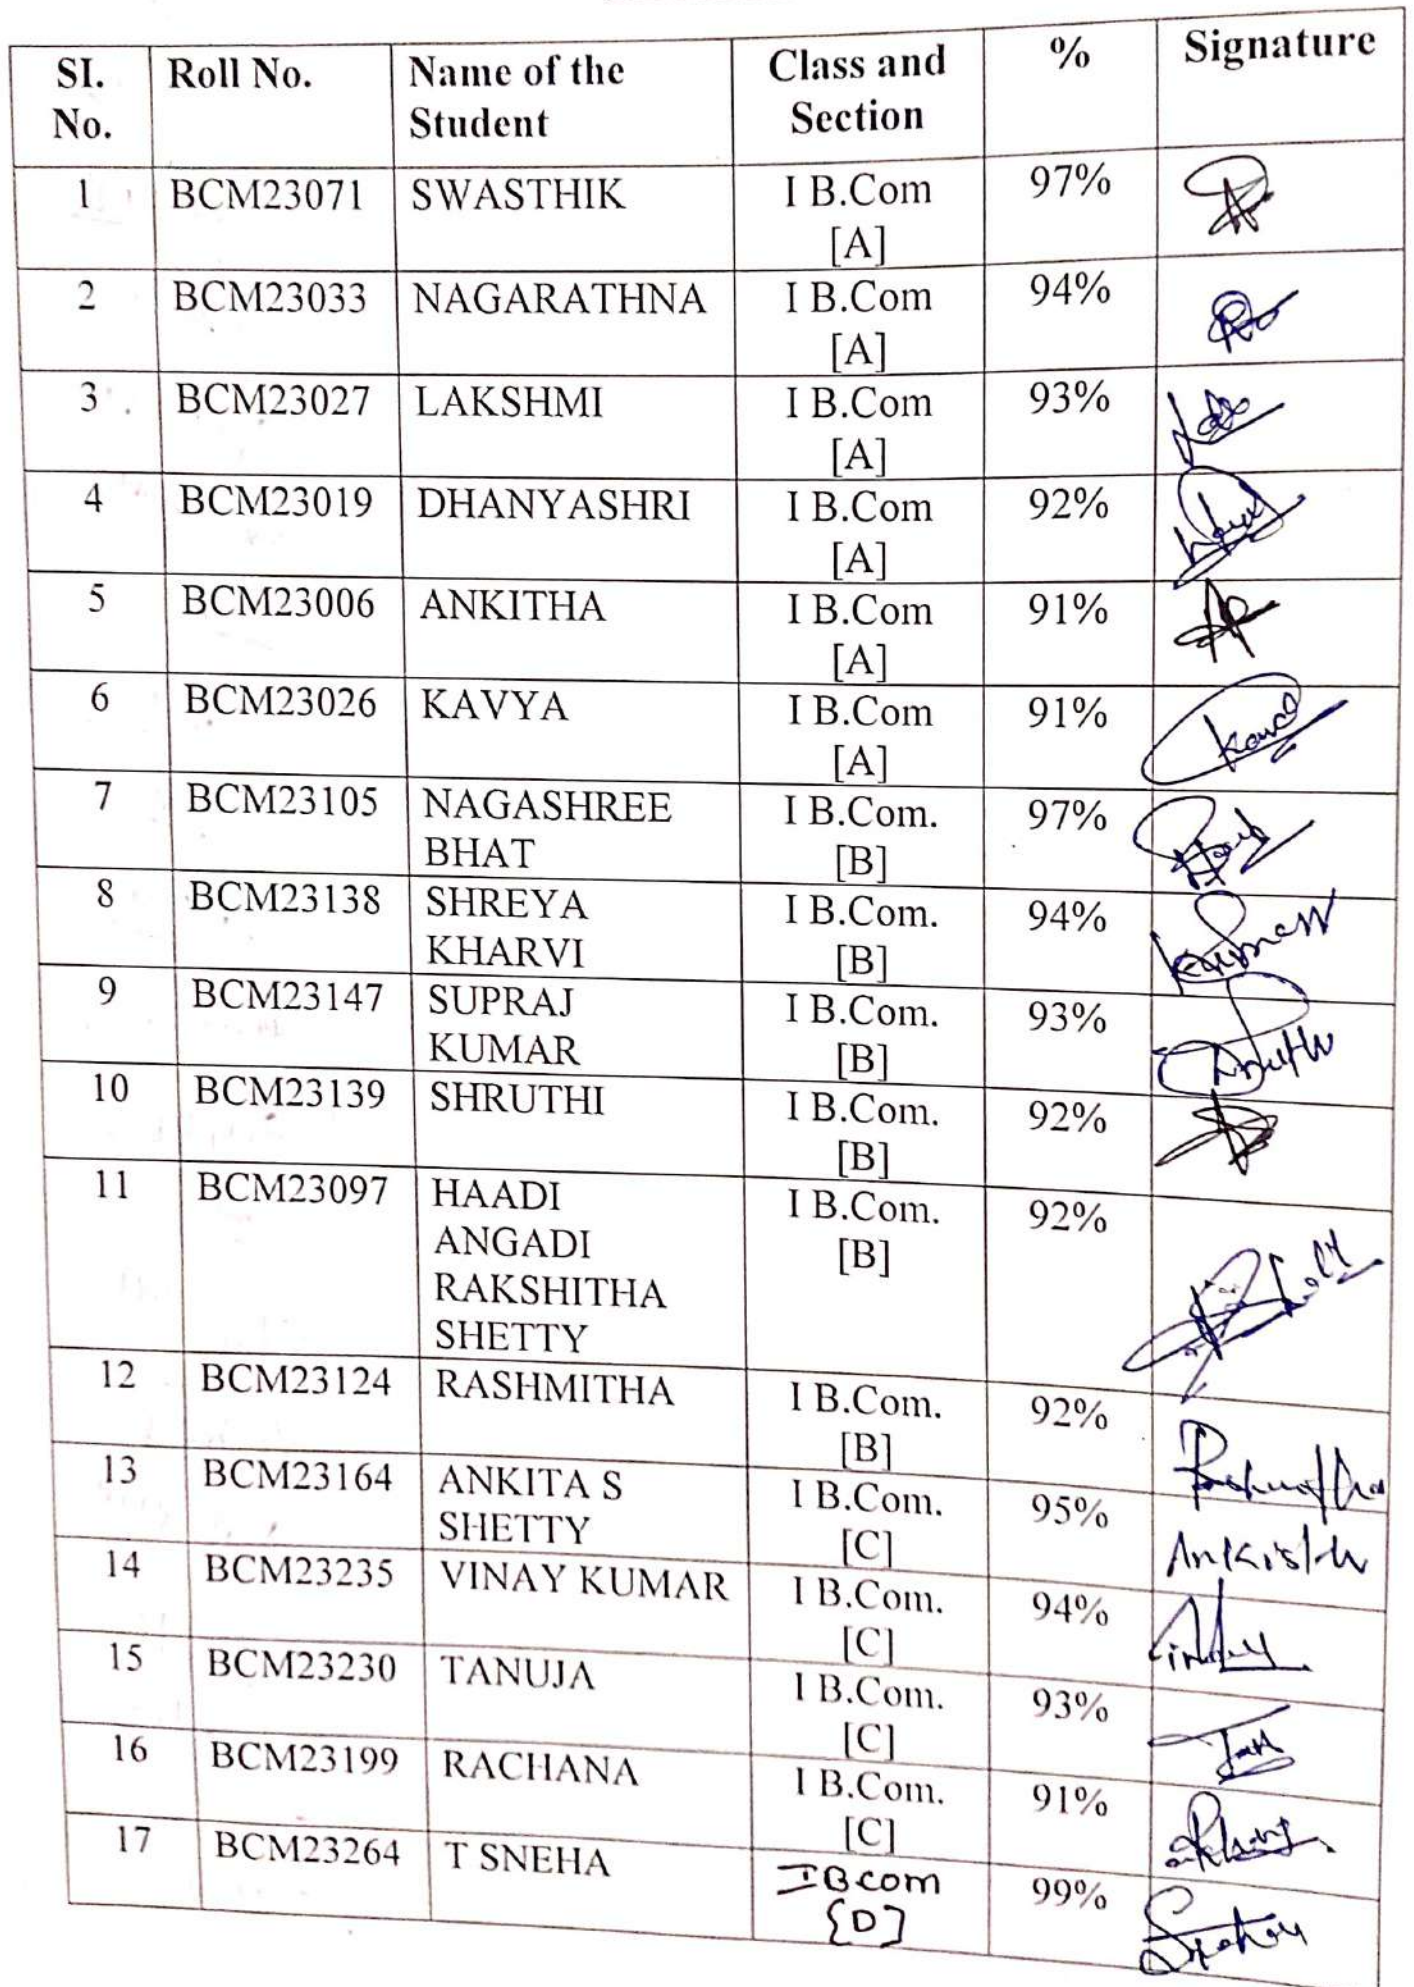 SI. No. Roll No. Name of the Student Class and Section % Signature
1 BCM23071 SWASTHIK I B.Com [A] 97%
2 BCM23033 NAGARATHNA I B.Com [A] 94%
3 BCM23027 LAKSHMI I B.Com [A] 93%
4 BCM23019 DHANYASHRI I B.Com [A] 92%
5 BCM23006 ANKITHA I B.Com [A] 91%
6 BCM23026 KAVYA I B.Com [A] 91%
7 BCM23105 NAGASHREE BHAT I B.Com. [B] 97%
8 BCM23138 SHREYA KHARVI I B.Com. [B] 94%
9 BCM23147 SUPRAJ KUMAR I B.Com. [B] 93%
10 BCM23139 SHRUTHI I B.Com. [B] 92%
11 BCM23097 HAADI ANGADI RAKSHITHA SHETTY I B.Com. [B] 92%
12 BCM23124 RASHMITHA I B.Com. [B] 92%
13 BCM23164 ANKITA S SHETTY I B.Com. [C] 95%
14 BCM23235 VINAY KUMAR I B.Com. [C] 94%
15 BCM23230 TANUJA I B.Com. [C] 93%
16 BCM23199 RACHANA I B.Com. [C] 91%
17 BCM23264 T SNEHA I B com [D] 99%